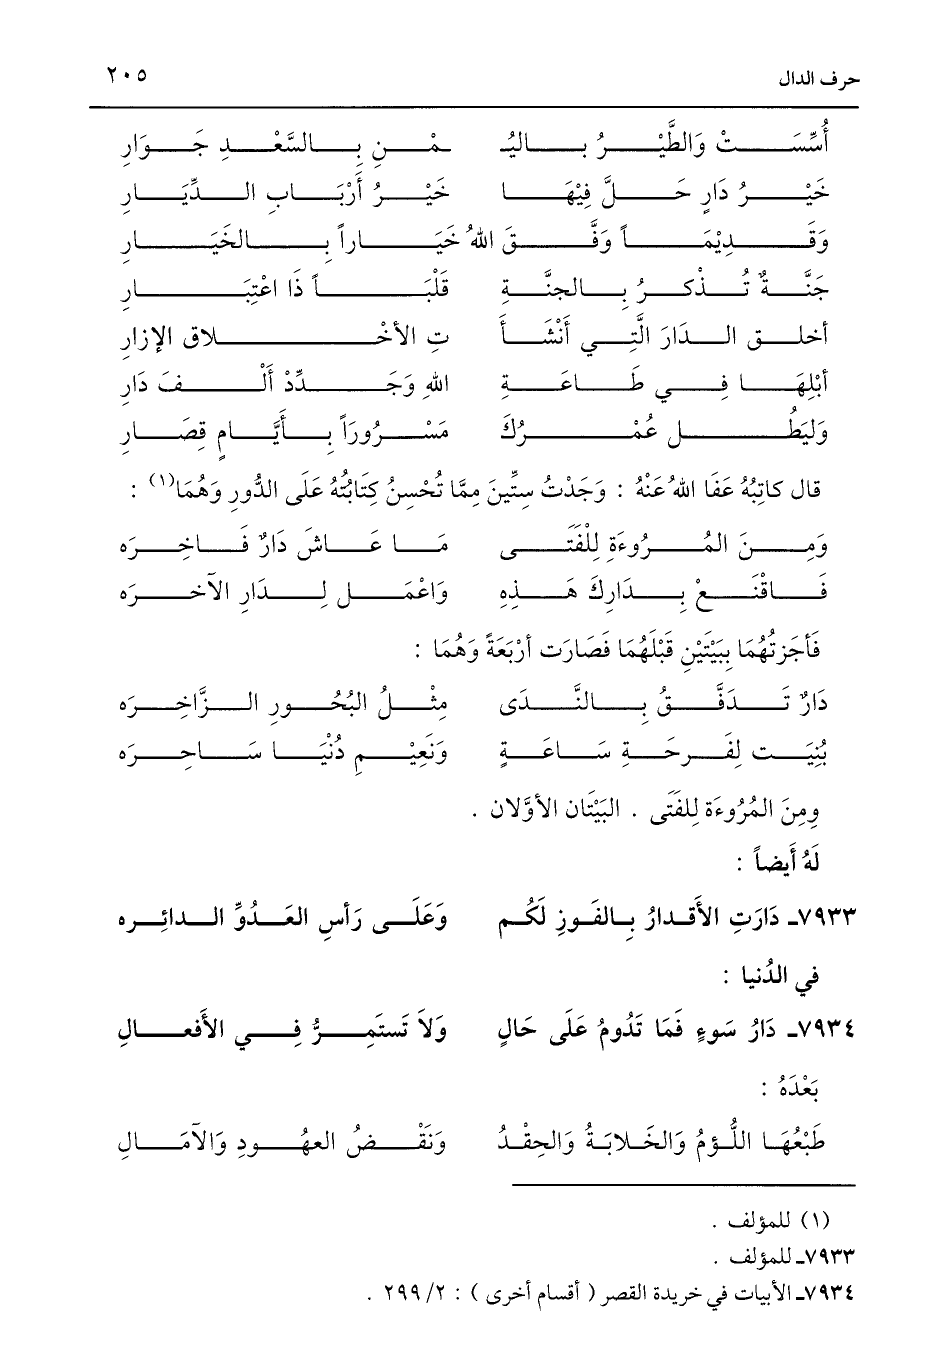 حرف الدال ٢٠٥
أُسِّسَتْ وَالطَّيْرُ بِاليُـ ـمْنِ بِالسَّعْدِ جَوَارِ
خَيْرُ دَارٍ حَلَّ فِيْهَا خَيْرُ أَرْبَابِ الدِّيَارِ
وَقَدِيْمَاً وَفَّقَ اللهُ خَيَاراً بِالخَيَارِ
جَنَّةٌ تُذْكِرُ بِالجنَّةِ قَلْبَاً ذَا اعْتِبَارِ
أخلق الدَارَ الَّتِي أَنْشَأَ تِ الأخْلاق الإزارِ
أبْلِهَا فِي طَاعَةِ اللهِ وَجَدِّدْ أَلْفَ دَارِ
وَليَطُل عُمْرُكَ مَسْرُورَاً بِأَيَّامٍ قِصَارِ
قال كاتِبُهُ عَفَا اللهُ عَنْهُ : وَجَدْتُ ستِّينَ مِمَّا تُحْسِنُ كِتَابَتُهُ عَلَى الدُّورِ وَهُمَا(١) :
وَمِنَ المُرُوءَةِ لِلْفَتَى مَا عَاشَ دَارٌ فَاخِرَه
فَاقْنَعْ بِدَارِكَ هَذِهِ وَاعْمَل لِدَارِ الآخرَه
فَأجَزتُهُمَا بِبَيْتَيْنِ قَبْلَهُمَا فَصَارَت أرْبَعَةً وَهُمَا :
دَارٌ تَدَفَّقُ بِالنَّدَى مِثْلُ البُحُورِ الزَّاخِرَه
بُنِيَت لِفَرحَةِ سَاعَةٍ وَنَعِيْمِ دُنْيَا سَاحِرَه
ومِنَ المُرُوءَة لِلفَتَى . البَيْتَان الأوَّلان .
لَهُ أَيضاً :
٧٩٣٣ـ دَارَتِ الأَقدارُ بِالفَوزِ لَكُم وَعَلَى رَأسِ العَدُوِّ الدائِره
في الدُنيا :
٧٩٣٤ـ دَارُ سَوءٍ فَمَا تَدُومُ عَلَى حَالٍ وَلاَ تَستَمِرُّ فِي الأَفعالِ
بَعْدَهُ :
طَبْعُهَا اللُّؤمُ وَالخَلابَةُ وَالحِقْدُ وَنَقْضُ العهُودِ وَالآمَالِ
(١) للمؤلف .
٧٩٣٣ـ للمؤلف .
٧٩٣٤ـ الأبيات في خريدة القصر ( أقسام أخرى ) : ٢/ ٢٩٩ .